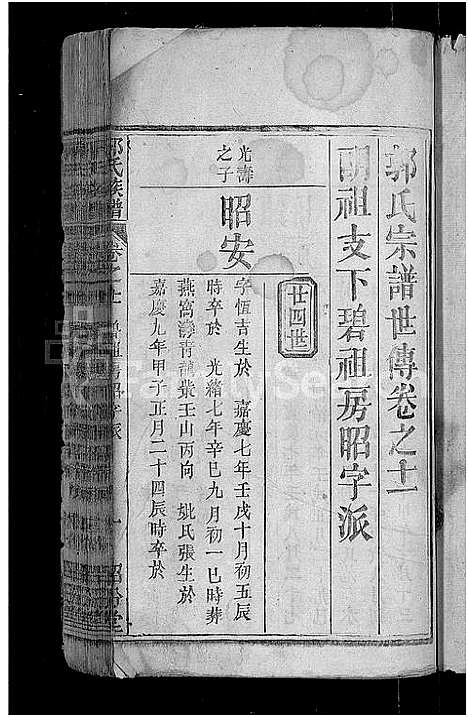 郭氏宗譜世傳卷之十一
朝祖支下碧祖房昭字派
廿四世
光壽
之子
昭安
字恆吉生於 嘉慶七年壬戌十月初五辰
時卒於 光緒七年辛巳九月初一巳時葬
燕窩灣青龍嘴壬山丙向 妣氏張生於
嘉慶九年甲子正月二十四辰時卒於
郭氏族譜
卷之十一
房昭字派
一